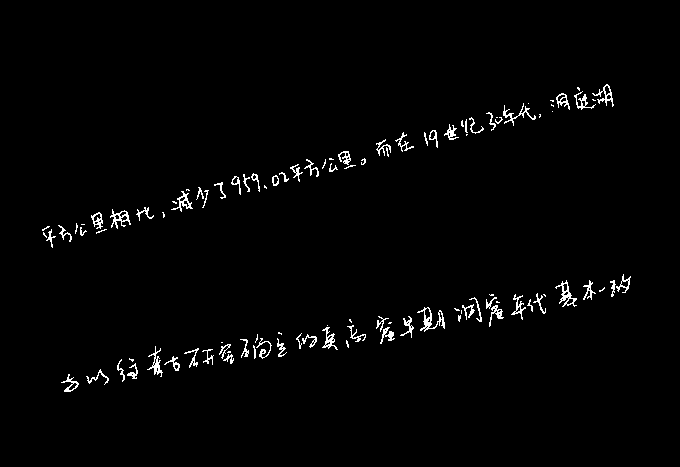 平方公里相比，减少了959.02平方公里。而在19世纪30年代，洞庭湖
与以往考古研究确立的莫高窟早期洞窟年代基本一致